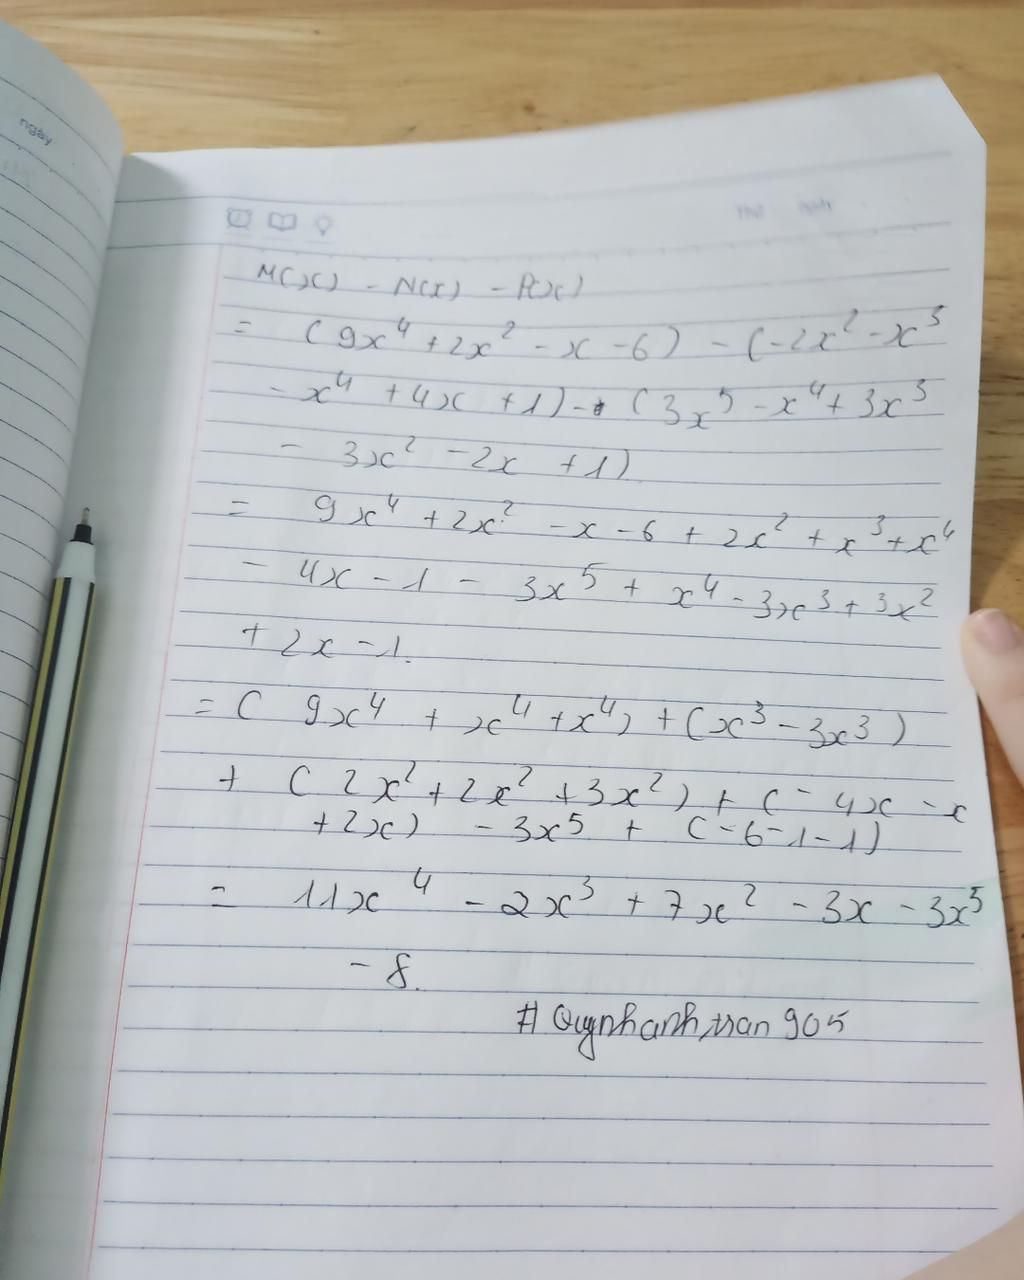 ngày
M(x) - N(x) - P(x)
= (9x⁴ + 2x² - x - 6) - (-2x² - x³
- x⁴ + 4x + 1) - (3x⁵ - x⁴ + 3x³
- 3x² - 2x + 1)
= 9x⁴ + 2x² - x - 6 + 2x² + x³ + x⁴
- 4x - 1 - 3x⁵ + x⁴ - 3x³ + 3x²
+ 2x - 1.
= ( 9x⁴ + x⁴ + x⁴) + (x³ - 3x³)
+ ( 2x² + 2x² + 3x²) + ( - 4x - x
+ 2x) - 3x⁵ + ( - 6 - 1 - 1)
= 11x⁴ - 2x³ + 7x² - 3x - 3x⁵
- 8.
# Quynhanh,tran 905